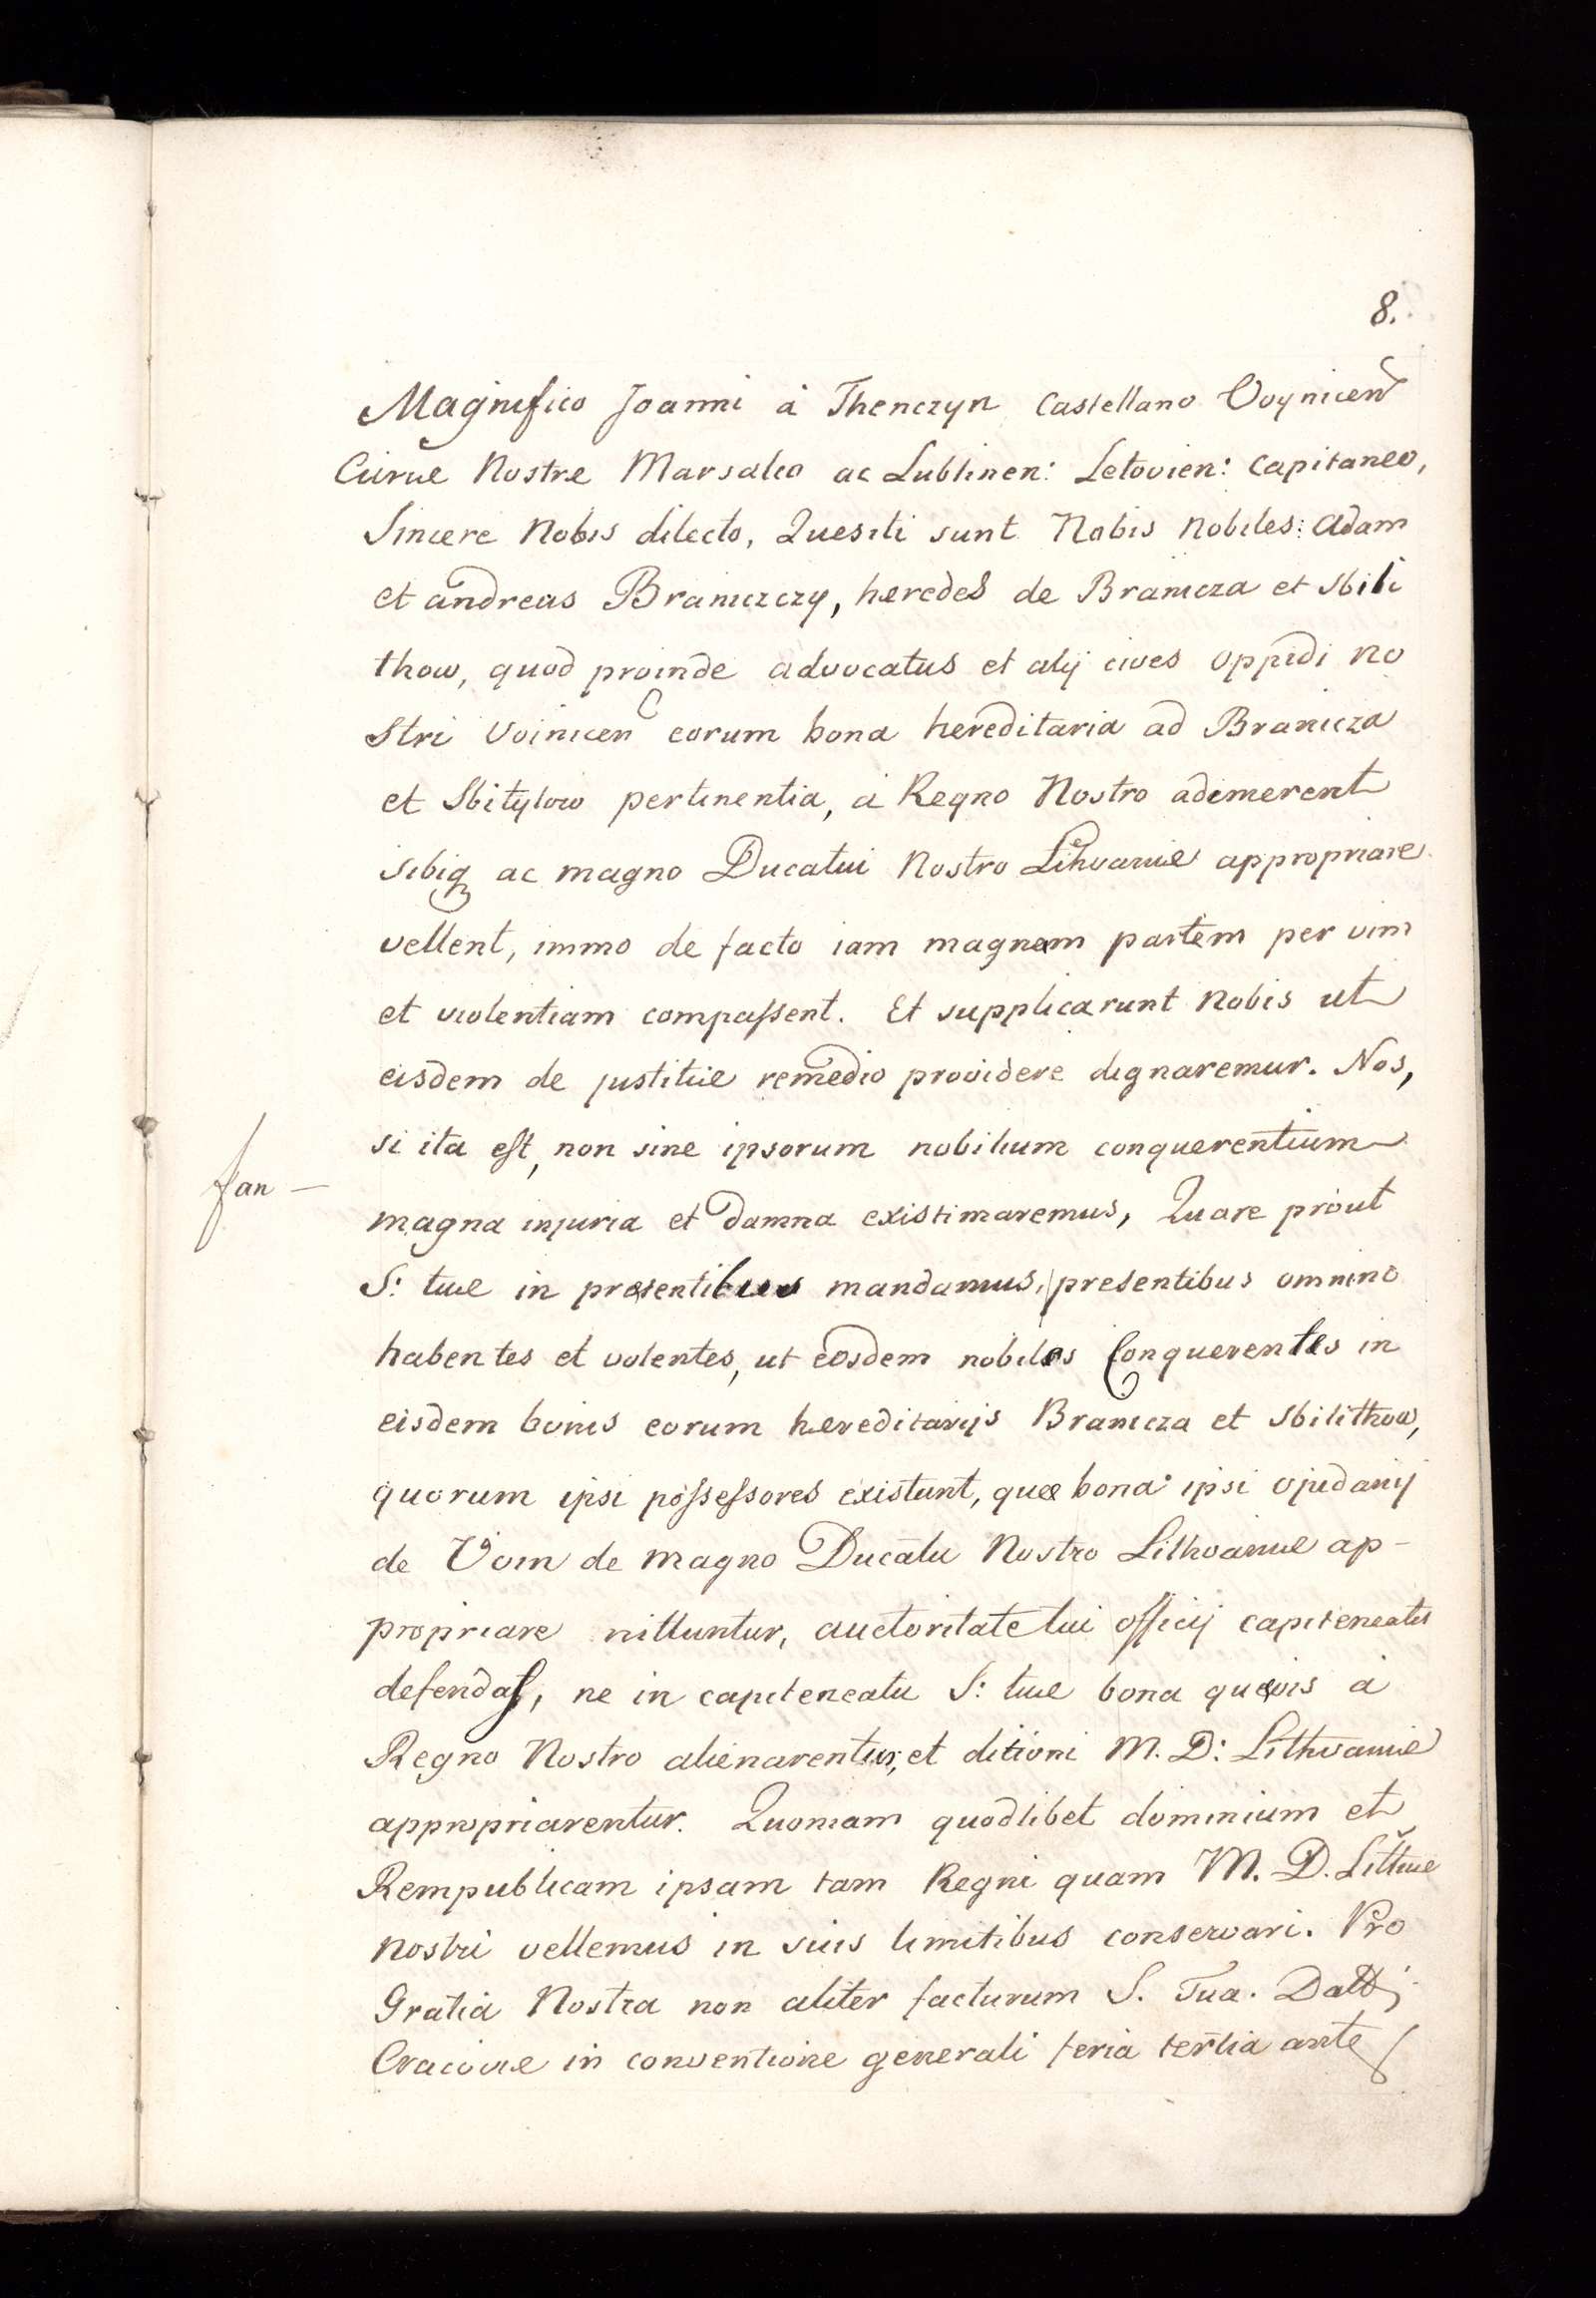 8.
Magnifico Joanni à Thenczyn Castellano Voynicen
Curiæ Nostræ Marsalco ac Lublinen: Letovien: capitaneo,
Sincere Nobis dilecto, Quesiti sunt Nobis Nobiles: Adam
et andreas Braniczczy, hæredes de Branicza et Sbili
thow, quod proinde advocatus et alij cives oppidi no
stri Voinicen eorum bona hereditaria ad Branicza
et Sbitylow pertinentia, à Regno Nostro adimerent
sibiq ac magno Ducatui Nostro Lithvaniæ appropriare
vellent, immo de facto iam magnam partem per vim
et violentiam compassent. Et supplicarunt Nobis ut
eisdem de justitiæ remedio providere dignaremur. Nos,
si ita est, non sine ipsorum nobilium conquerentium
fan —
magna injuria et damna existimaremus, Quare prout
S: tuæ in præsentibus mandamus, presentibus omnino
habentes et volentes, ut eosdem nobiles Conquerentes in
eisdem bonis eorum hæreditarijs Branicza et Sbilithow,
quorum ipsi possessores existunt, quæ bona ipsi opidanij
de Voin de magno Ducatu Nostro Lithvaniæ ap-
propriare nittuntur, auctoritate tui officij capiteneatus
defendas, ne in capiteneatu S: tuæ bona quævis à
Regno Nostro alienarentur, et ditioni M. D: Lithvaniæ
appropriarentur. Quoniam quodlibet dominium et
Rempublicam ipsam tam Regni quam M. D. Littuæ
nostri vellemus in suis limitibus conservari. Pro
Gratia Nostra non aliter facturum S. Tua. Datt;
Cracoviæ in conventione generali feria tertia ante